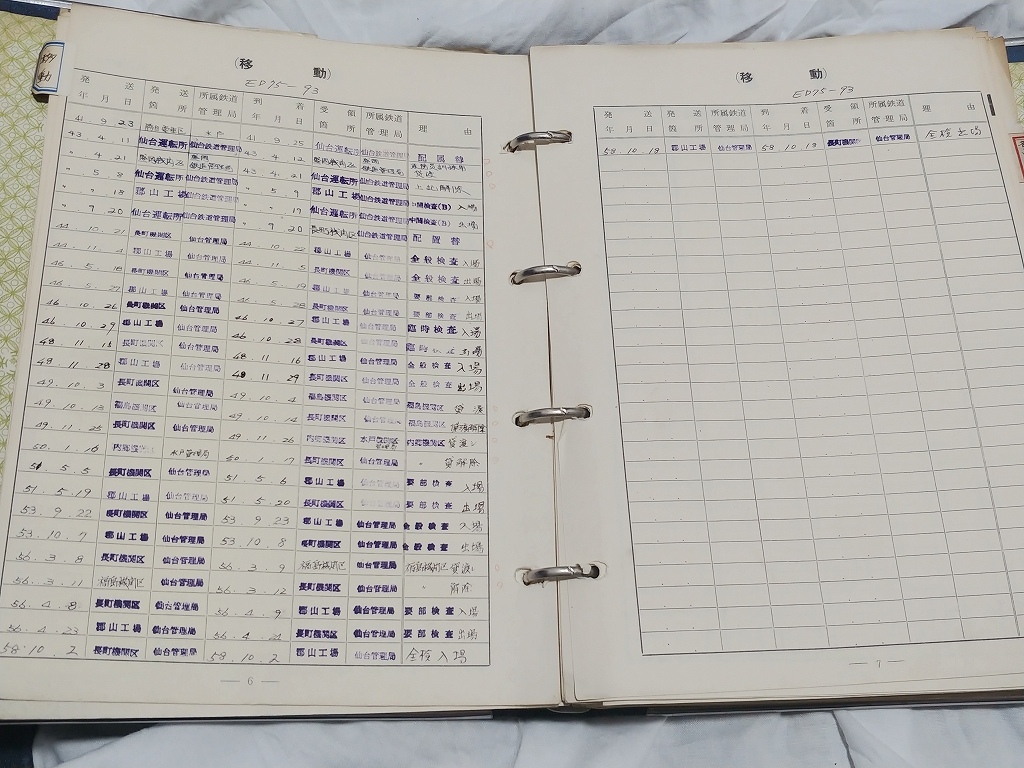 動
(移動)
ED75-93
発送 年月日 発送箇所 所属鉄道管理局 到着 年月日 受領箇所 所属鉄道管理局 理由
41.9.23 水戸 41.9.25 仙台運転所 仙台鉄道管理局 配属替
43.4.11 仙台運転所 仙台鉄道管理局 43.4.12 盛岡
〃 4.21 盛岡 43.4.21 仙台運転所 仙台鉄道管理局 上記解除
〃 5.8 仙台運転所 仙台鉄道管理局 〃 5.9 郡山工場 仙台鉄道管理局 中間検査(B)入場
〃 〃 18 郡山工場 仙台鉄道管理局 〃 〃 19 仙台運転所 仙台鉄道管理局 中間検査(B)出場
〃 9 20 仙台運転所 仙台鉄道管理局 〃 9 20 長町機関区 仙台鉄道管理局 配置替
44.10.21 長町機関区 仙台管理局 44.10.22 郡山工場 仙台管理局 全般検査入場
44.11.4 郡山工場 仙台管理局 44.11.5 長町機関区 仙台管理局 全般検査出場
46.5.18 長町機関区 仙台管理局 46.5.19 郡山工場 仙台管理局 要部検査入場
46.5.27 郡山工場 仙台管理局 46.5.28 長町機関区 仙台管理局 要部検査出場
46.10.26 長町機関区 仙台管理局 46.10.27 郡山工場 仙台管理局 臨時検査入場
46.10.29 郡山工場 仙台管理局 46.10.28 長町機関区 仙台管理局 出場
48.11.15 長町機関区 仙台管理局 48.11.16 郡山工場 仙台管理局 全般検査入場
48.11.28 郡山工場 仙台管理局 48.11.29 長町機関区 仙台管理局 全般検査出場
49.10.3 長町機関区 仙台管理局 49.10.4 福島機関区 仙台管理局 福島機関区貸渡
49.10.13 福島機関区 仙台管理局 49.10.14 長町機関区 仙台管理局 福島機関区
49.11.25 長町機関区 仙台管理局 49.11.26 内郷機関区 内郷機関区貸渡し
50.1.16 水戸管理局 50.1.17 長町機関区 仙台管理局 〃 貸解除
51.5.5 長町機関区 仙台管理局 51.5.6 郡山工場 仙台管理局 要部検査入場
51.5.19 郡山工場 仙台管理局 51.5.20 長町機関区 仙台管理局 要部検査出場
53.9.22 長町機関区 仙台管理局 53.9.23 郡山工場 仙台管理局 全般検査入場
53.10.7 郡山工場 仙台管理局 53.10.8 長町機関区 仙台管理局 全般検査出場
56.3.8 長町機関区 仙台管理局 56.3.9 福島機関区 仙台管理局 福島機関区貸渡し
56.3.11 福島機関区 仙台管理局 56.3.12 長町機関区 仙台管理局 〃 解除
56.4.8 長町機関区 仙台管理局 56.4.9 郡山工場 仙台管理局 要部検査入場
56.4.23 郡山工場 仙台管理局 56.4.24 長町機関区 仙台管理局 要部検査出場
58.10.2 長町機関区 仙台管理局 58.10.2 郡山工場 仙台管理局 全検入場
― 6 ―
(移動)
ED75-93
発送 年月日 発送箇所 所属鉄道管理局 到着 年月日 受領箇所 所属鉄道管理局 理由
58.10.18 郡山工場 仙台管理局 58.10.18 長町機関区 仙台管理局 全検出場
― 7 ―